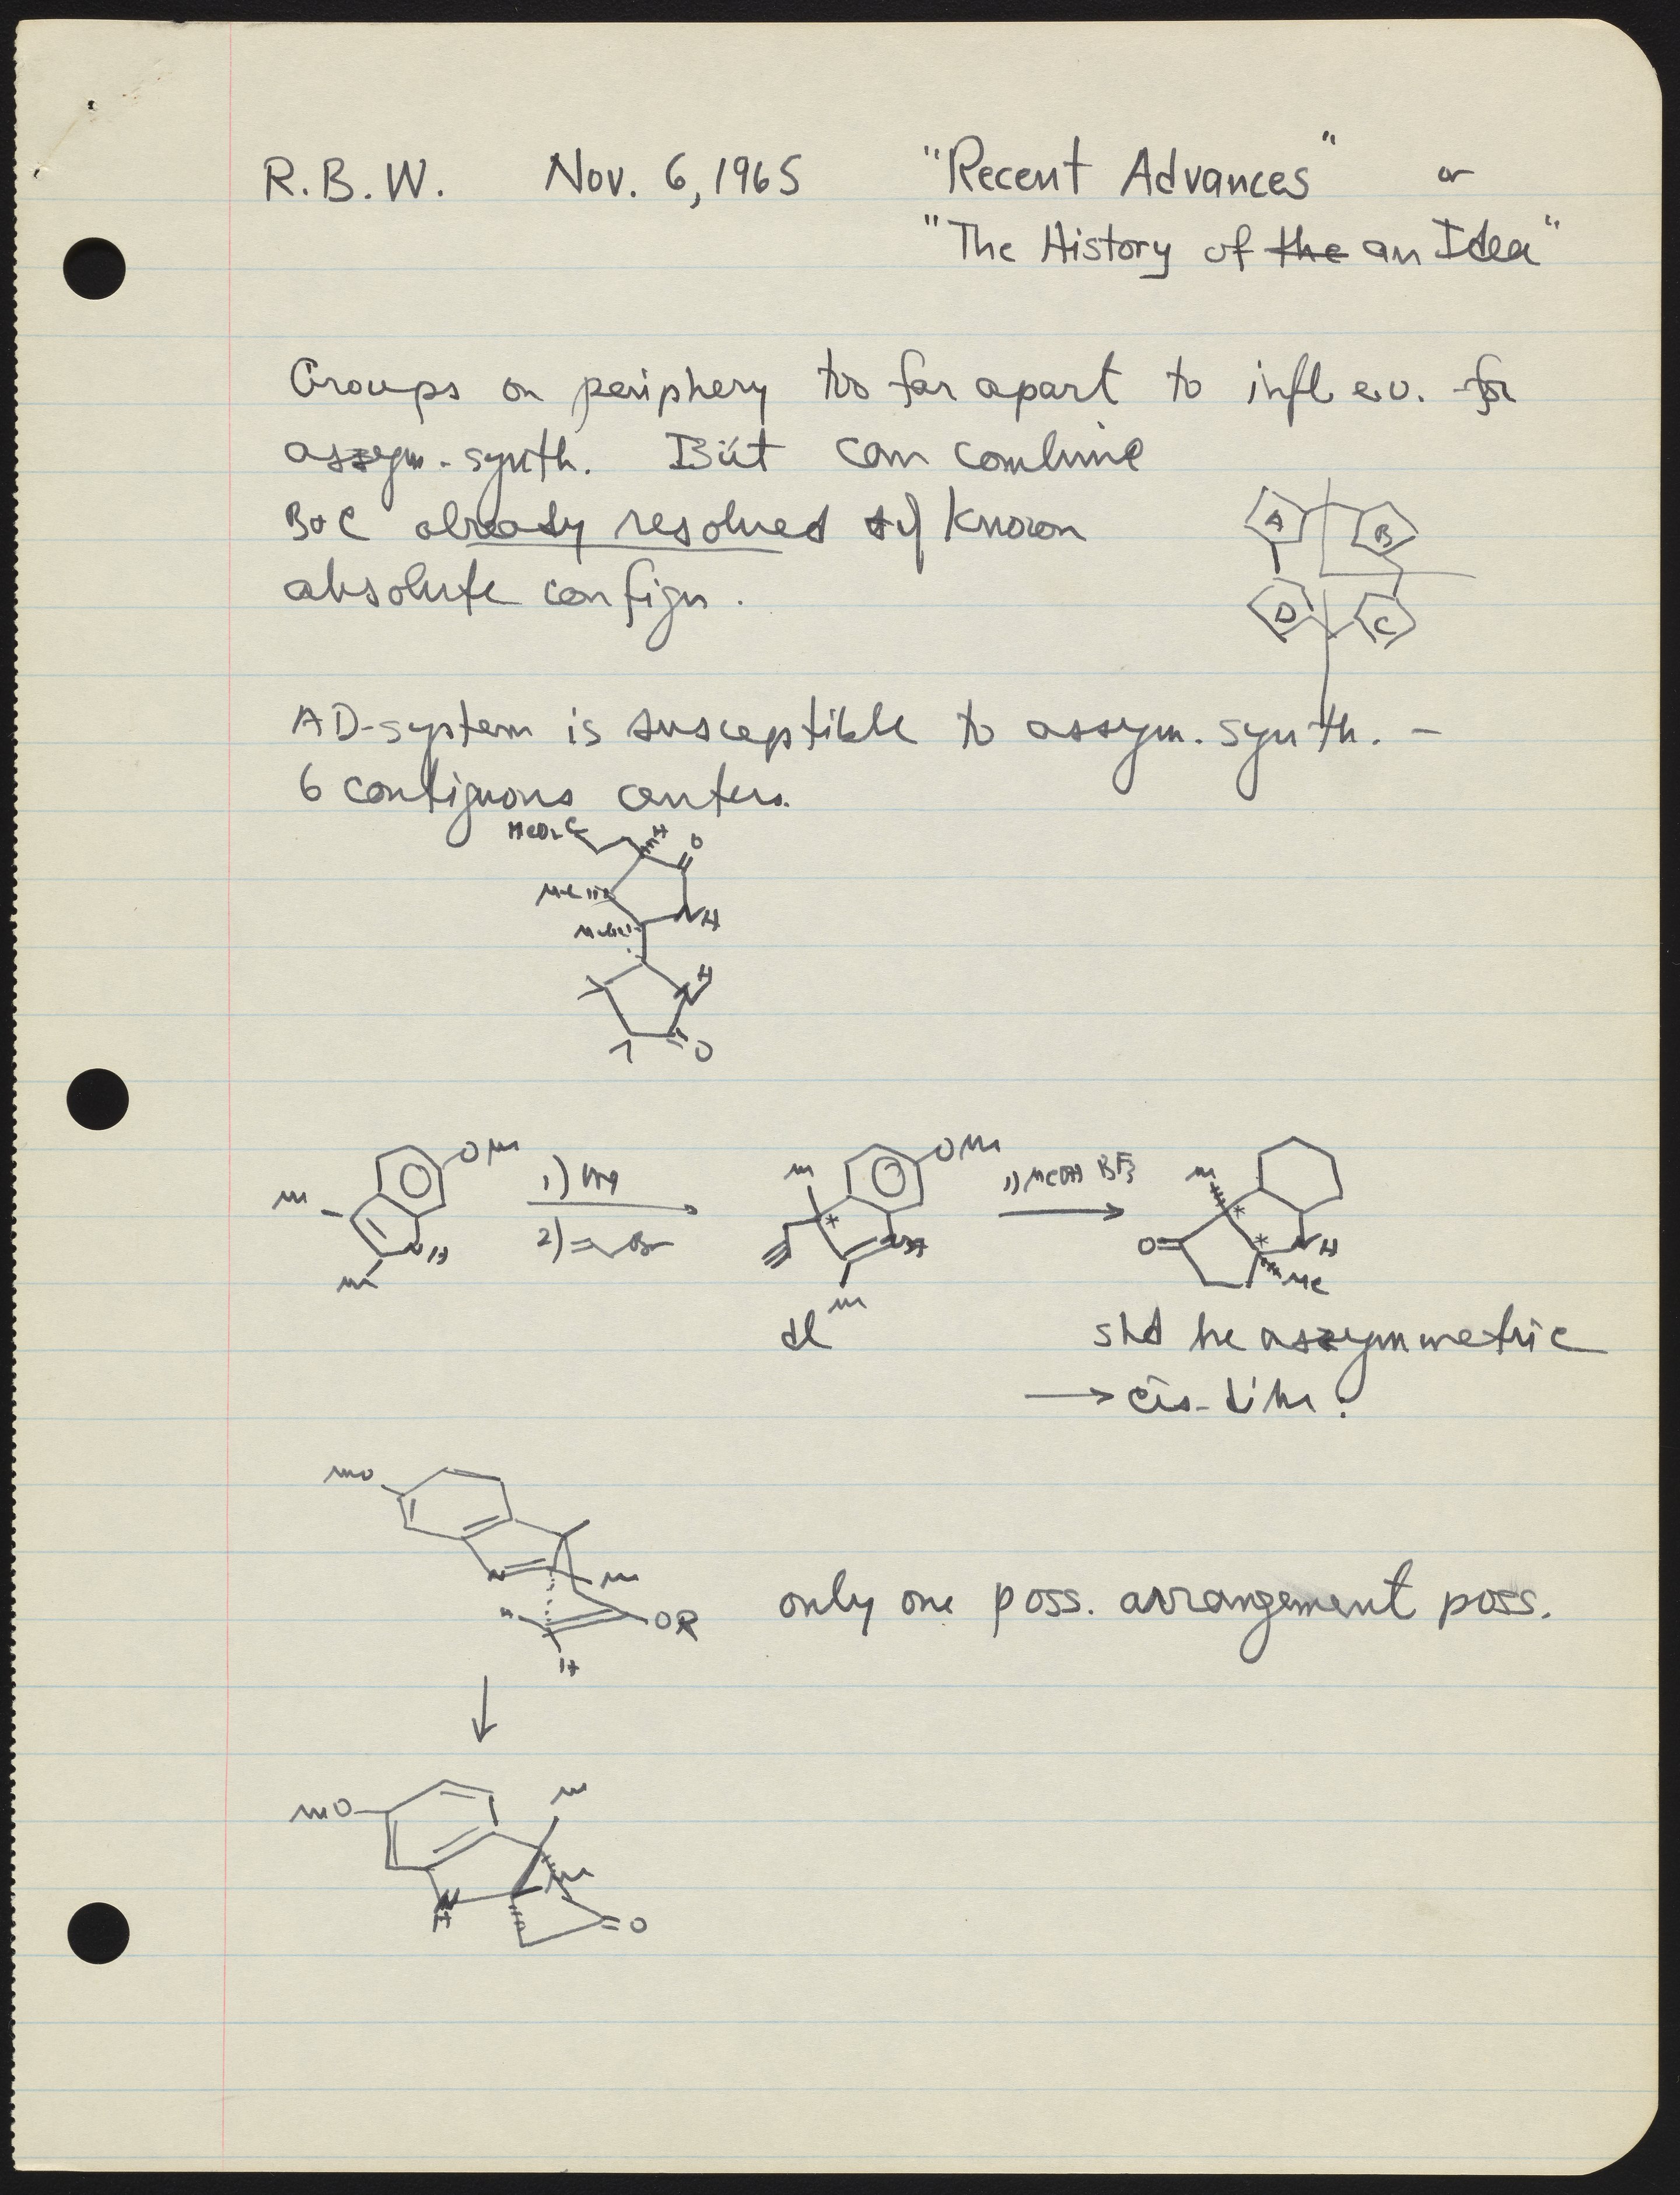 R.B.W. Nov. 6, 1965 "Recent Advances" or
"The History of the an Idea"
Groups on periphery too far apart to infl e.o. for
assym. synth. But can combine
B+C already resolved of known
absolute config.
A B
D C
AD-system is susceptible to assym. synth. –
6 contiguous centers.
MeO₂C H O
Me
Me N H
H
N
O
OMe
Me
N H
Me
1)
2) Br
Me OMe
*
N
Me
dl
1) MeOH BF3
Me
* *
O= N H
Me
shd be assymmetric
→ cis-
MeO
N Me
OR
H
only one poss. arrangement poss.
↓
MeO Me
Me
N
H
O